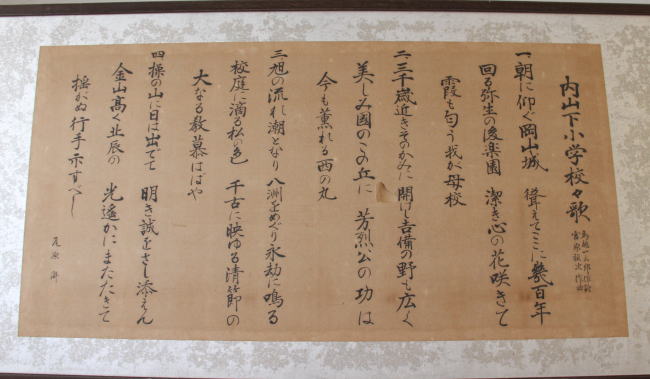 内山下小学校々歌
鳥越一三郎作詞
宮原禎次作曲
一朝に仰ぐ岡山城　聳えてここに幾百年
回る弥生の後楽園　潔き心の花咲きて
霞も匂う我が母校
二三千歳近きそのかみに　開けし吉備の野も広く
美しみ國のこの丘に　芳烈公の功は
今も薫れる西の丸
三旭の流れ潮となり　八洲をめぐり永劫に鳴る
校庭に滴る松の色　千古に映ゆる清節の
大なる教慕はばや
四操の山に日は出でて　明き誠をさし添えん
金山高く北辰の　光遙かにまたたきて
揺がぬ行手示すべし